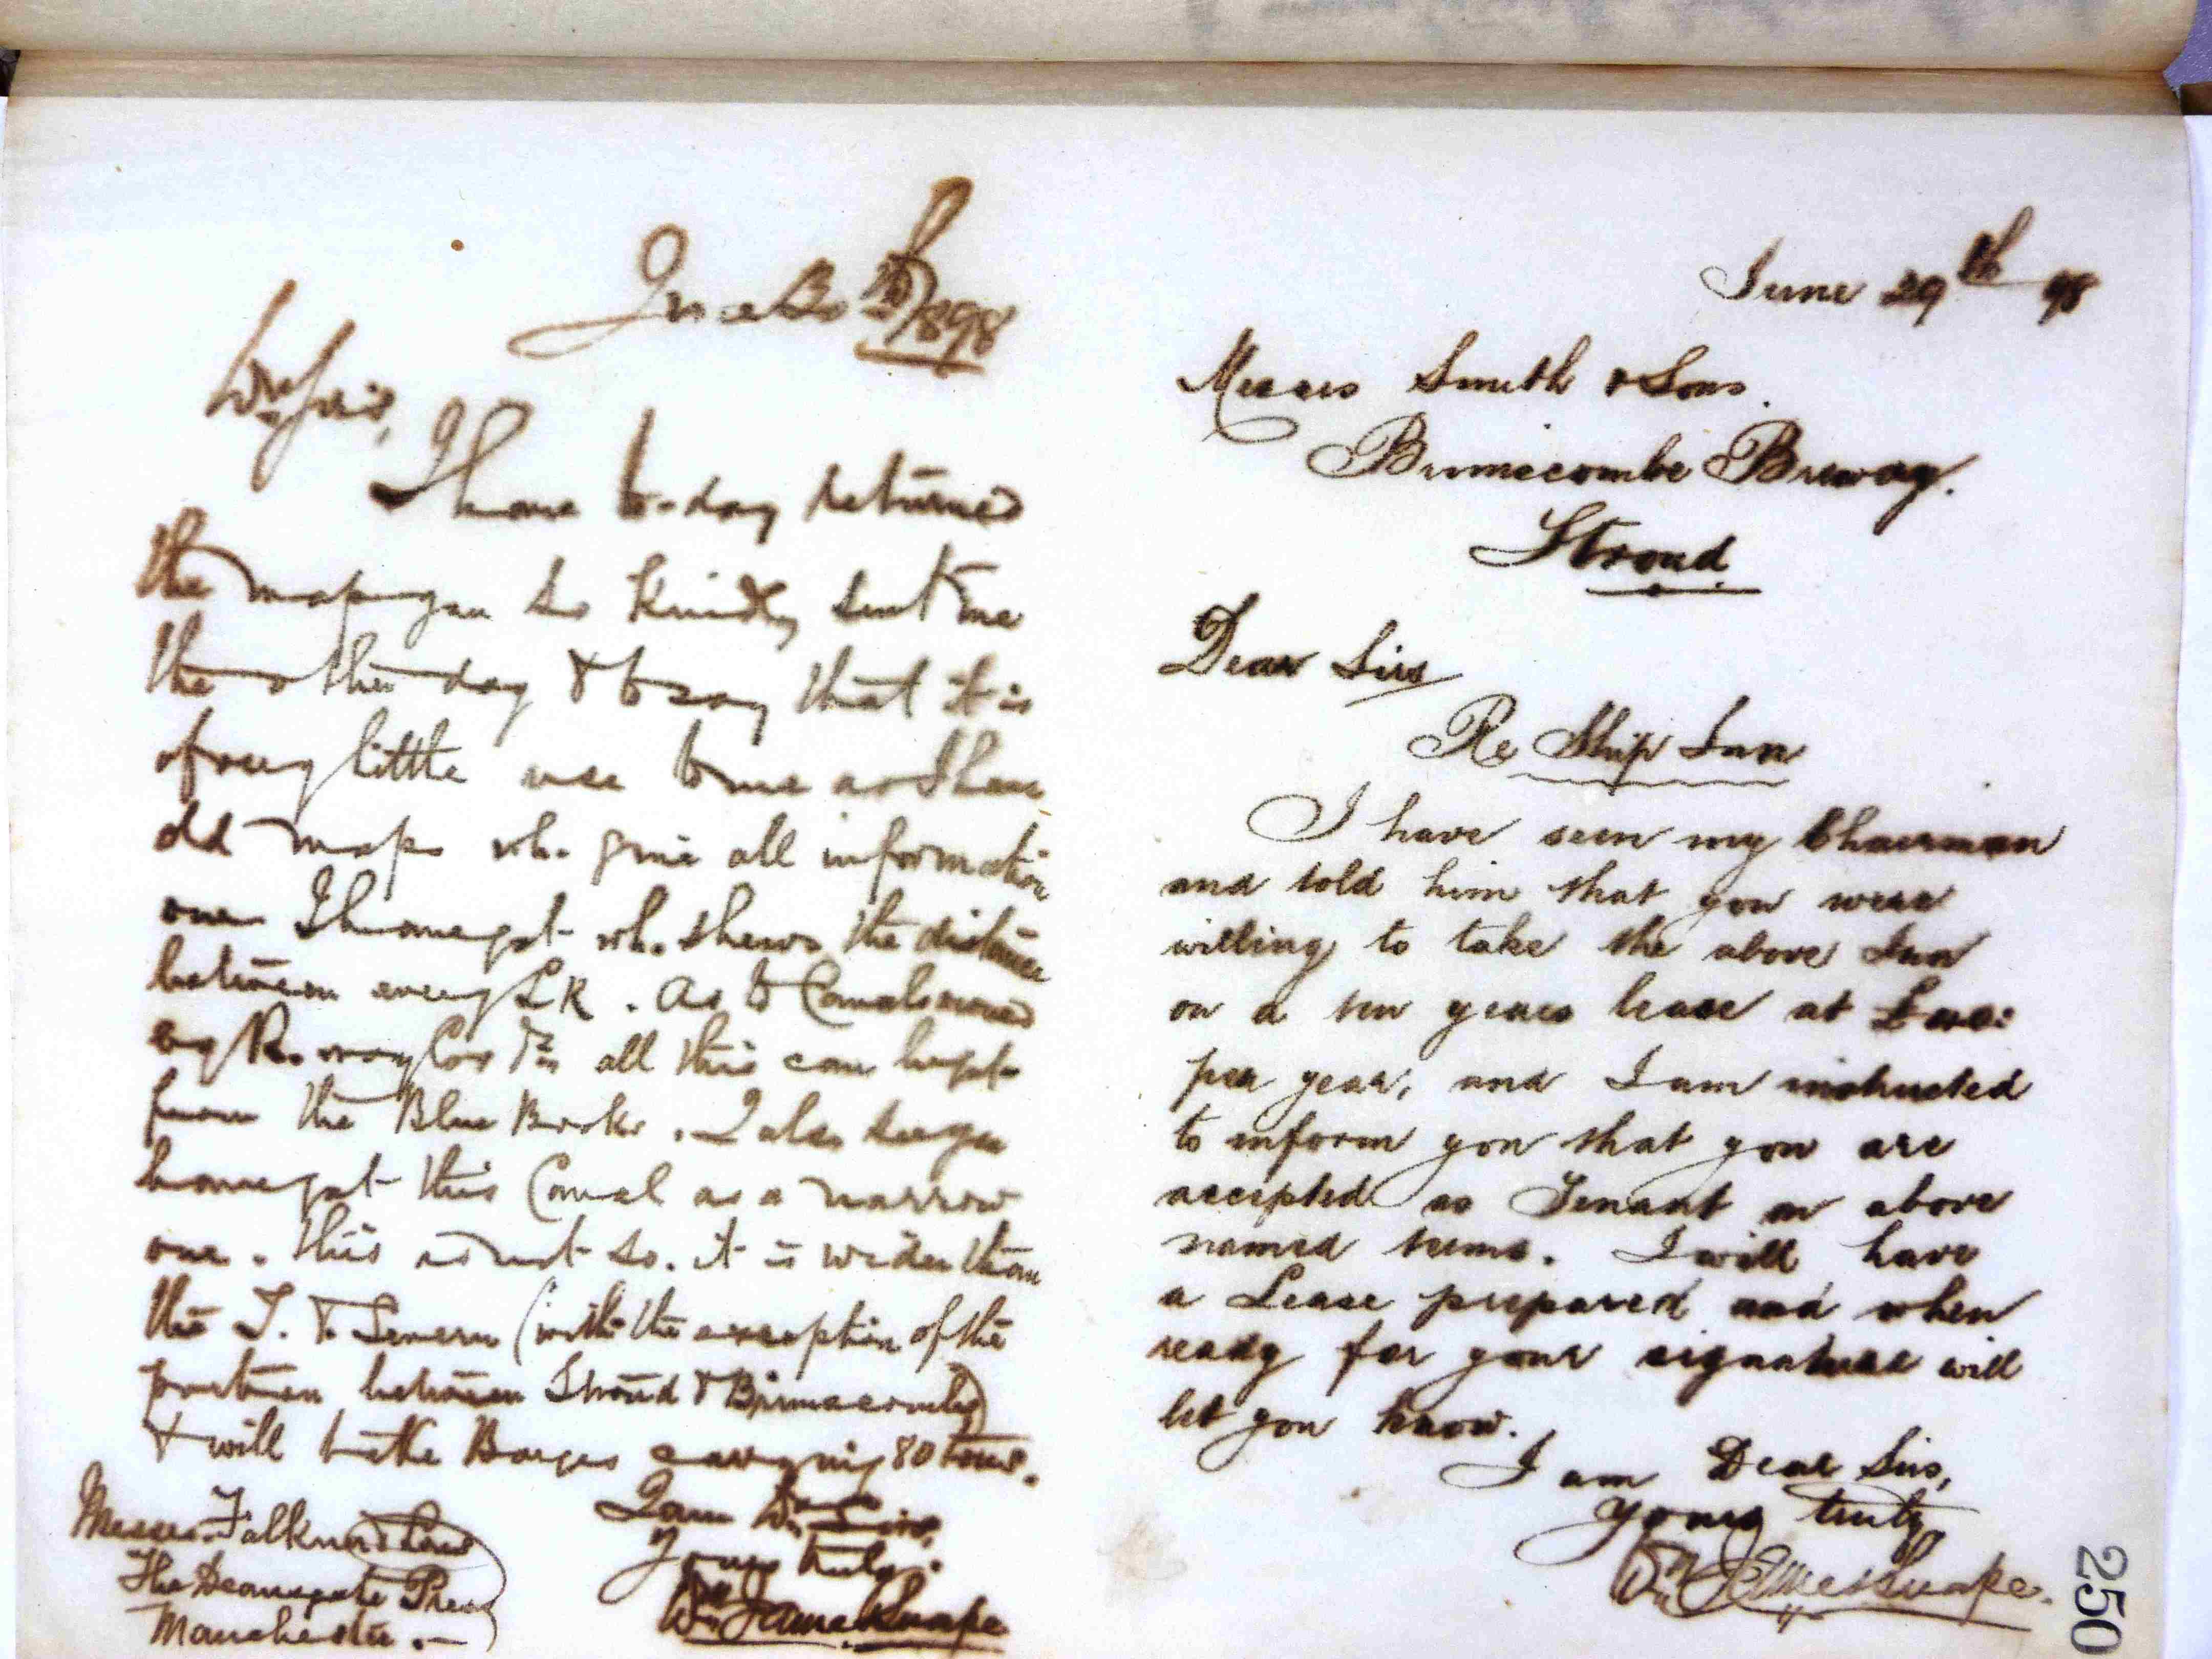 June 1898
Dr Sirs,
I have to-day returned
the map you so kindly sent me
the other day & to say that it is
of very little use to me as I have
old maps wh. give all information
one I have got wh. shews the distance
between every Lk. As to Canals owned
by R. way Cos &c all this can be got
from the Blue Books. I also see you
have got this Canal as a narrow
one. This is not so. it is wider than
the T. & Severn (with the exception of the
portion between Stroud & Brimscombe)
& will take Barges carrying 80 tons.
I am Dr Sirs,
Yours truly.
Wm James Snape
Messrs Falkner & Sons
The Deansgate Press
Manchester.—
June 29th 98
Messrs Smith & Sons.
Brimscombe Brewery.
Stroud.
Dear Sirs
Re Ship Inn
I have seen my Chairman
and told him that you were
willing to take the above Inn
on a ten years lease at
per year, and I am instructed
to inform you that you are
accepted as Tenant on above
named terms. I will have
a Lease prepared and when
ready for your signature will
let you know.
I am Dear Sirs,
Yours truly
Wm James Snape.
250